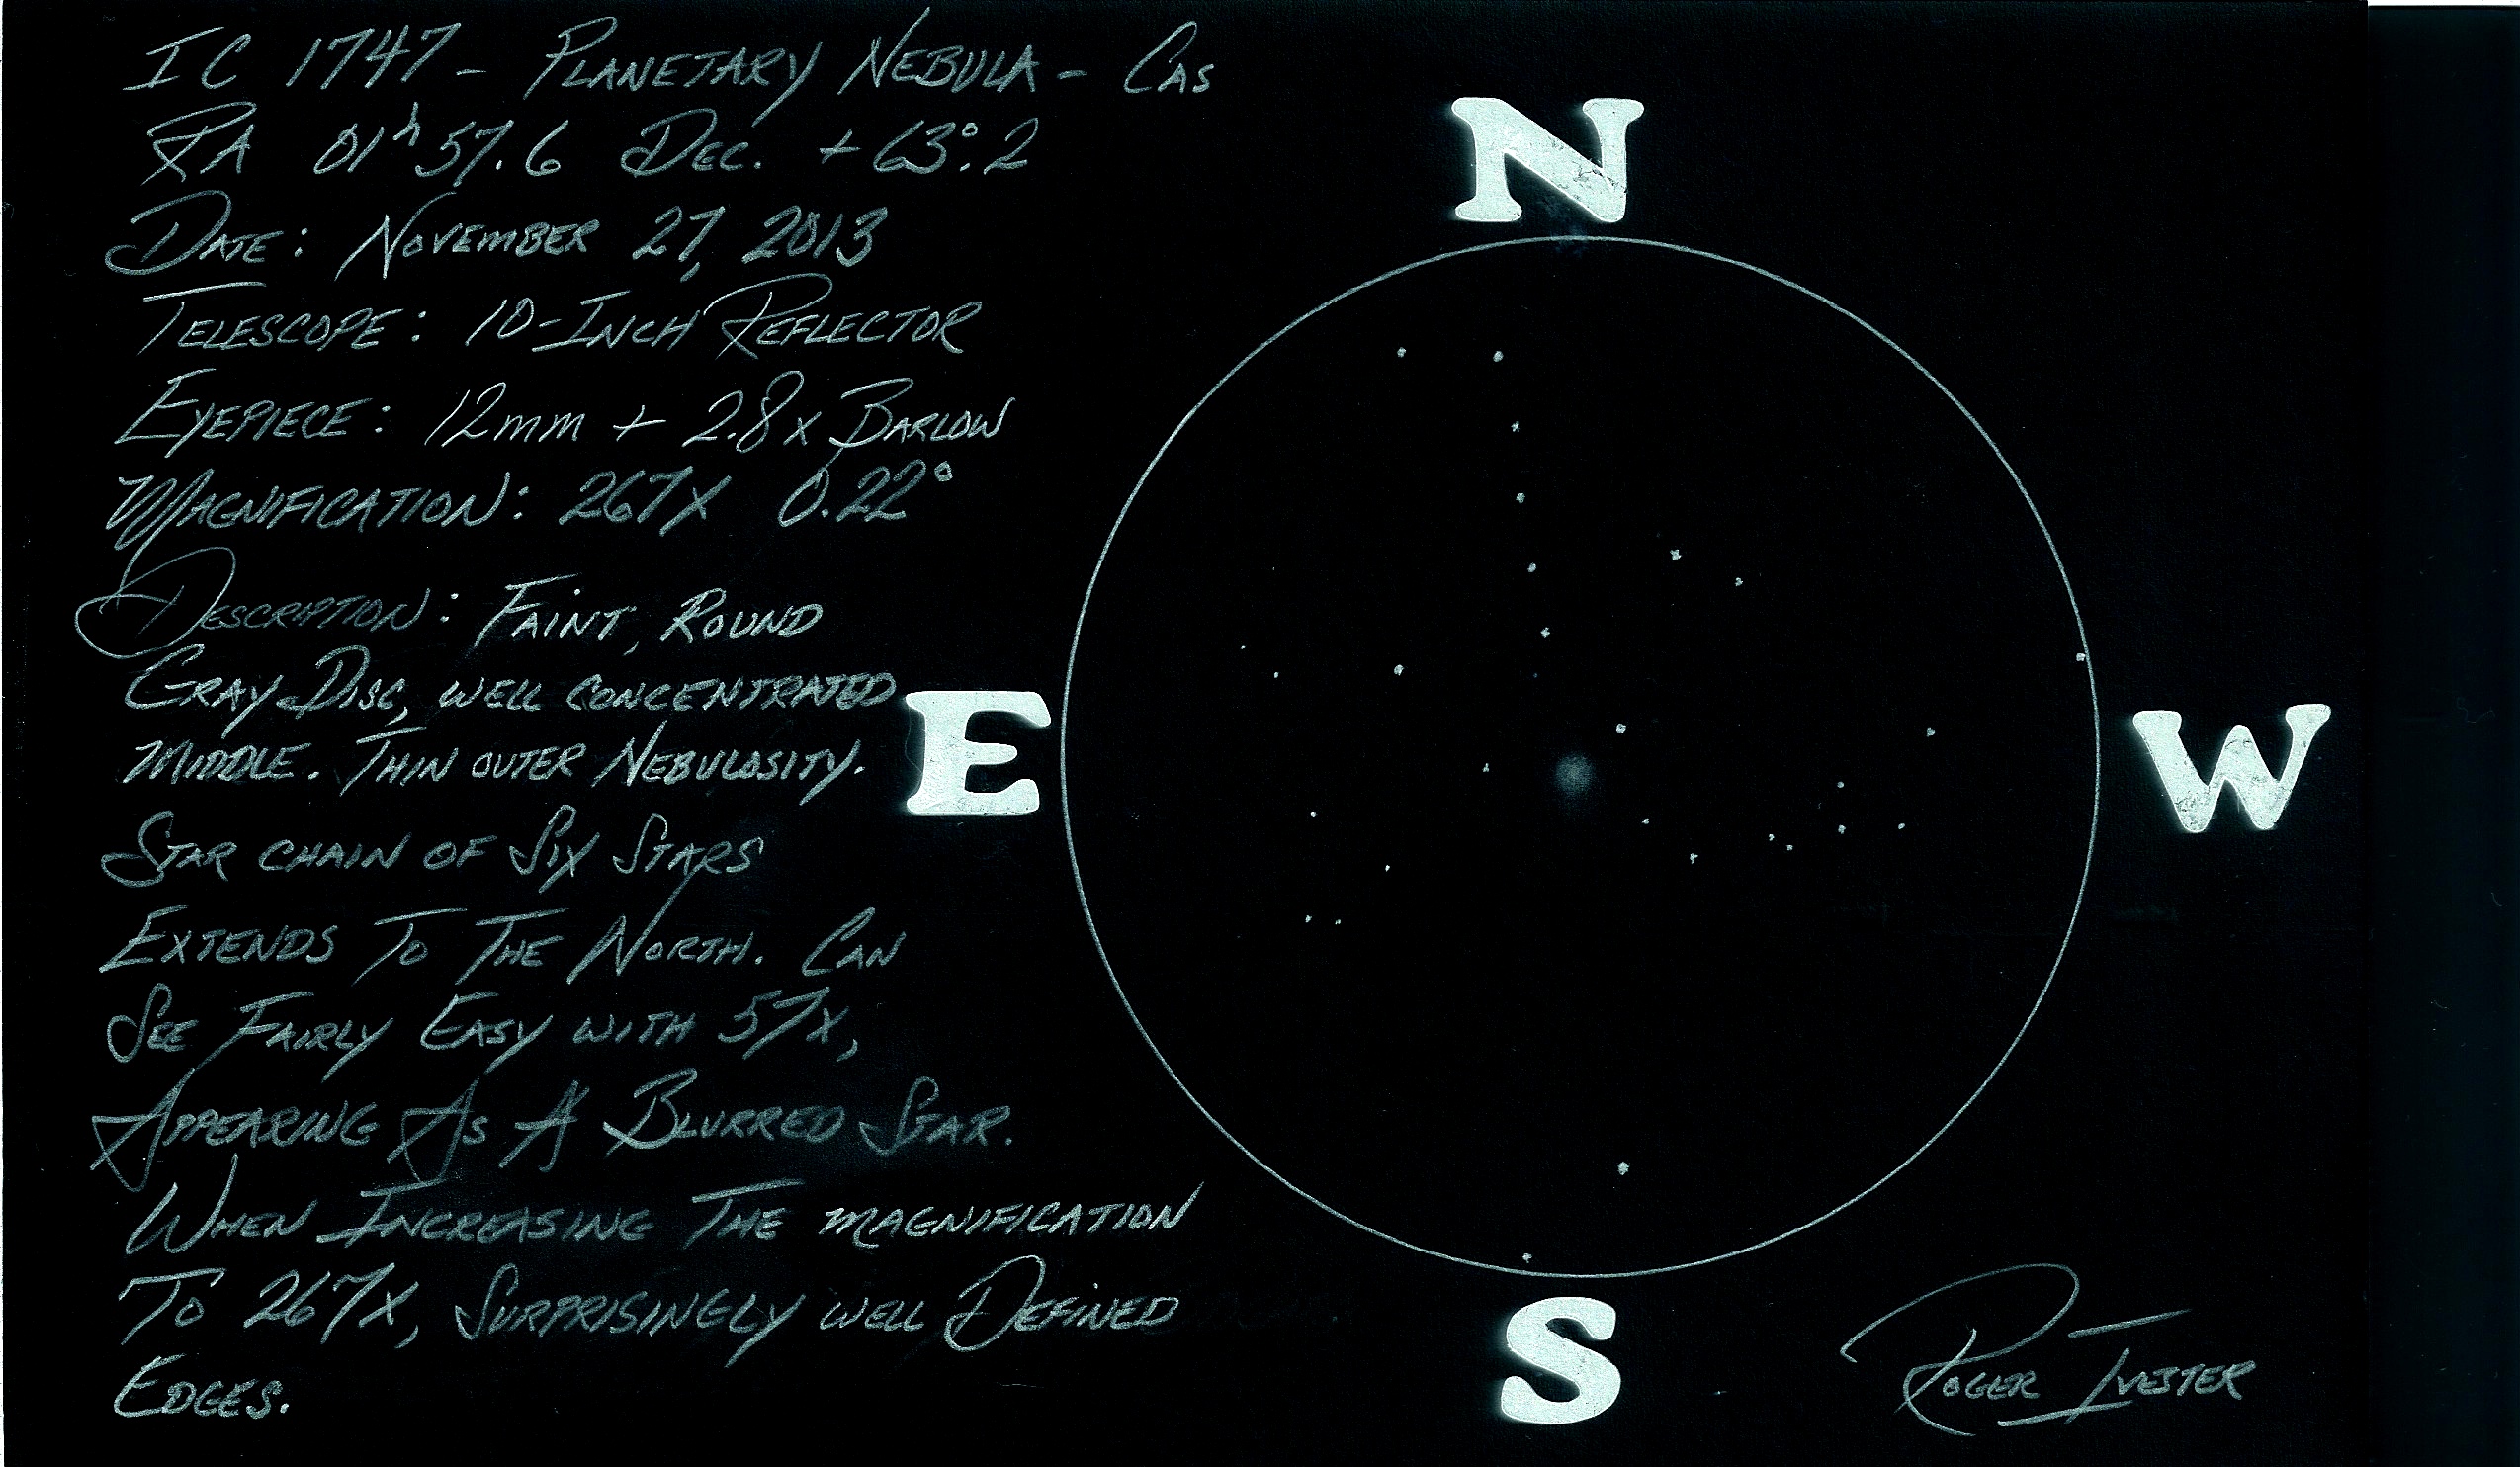 IC 1747 - PLANETARY NEBULA - CAS
RA 01ʰ 57.6 DEC. +63°.2
DATE: NOVEMBER 27, 2013
TELESCOPE: 10-INCH REFLECTOR
EYEPIECE: 12mm + 2.8x BARLOW
MAGNIFICATION: 267X 0.22°
DESCRIPTION: FAINT, ROUND
GRAY DISC, WELL CONCENTRATED
MIDDLE. THIN OUTER NEBULOSITY.
STAR CHAIN OF SIX STARS
EXTENDS TO THE NORTH. CAN
SEE FAIRLY EASY WITH 57X,
APPEARING AS A BLURRED STAR.
WHEN INCREASING THE MAGNIFICATION
TO 267X, SURPRISINGLY WELL DEFINED
EDGES.
N
E
W
S
ROGER IVESTER